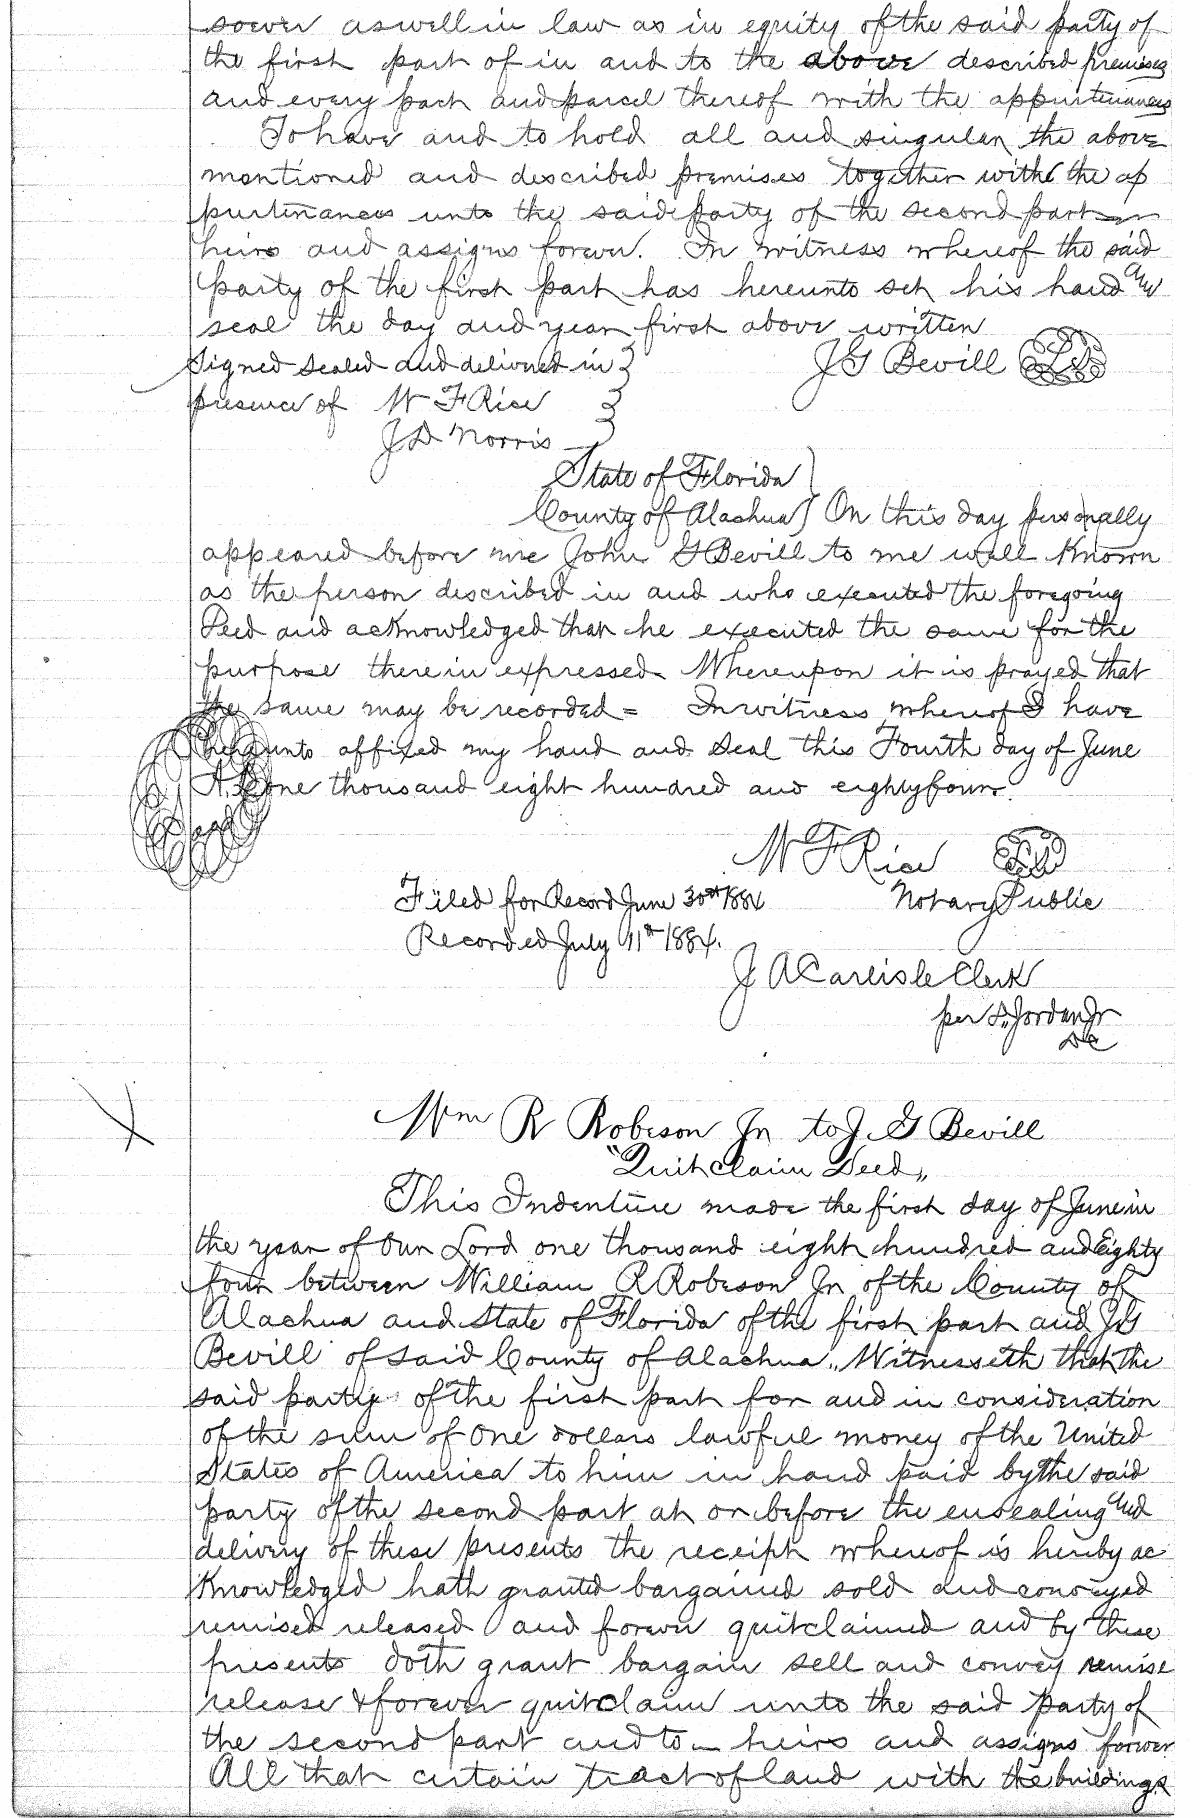 soever aswell in law as in equity of the said party of
the first part of in and to the above described premises
and every part and parcel thereof with the appurtenances
To have and to hold all and singular the above
mentioned and described premises together with the ap
purtinances unto the said party of the second part
heirs and assigns forever. In witness whereof the said
party of the first part has hereunto set his hand and
seal the day and year first above written
Signed sealed and delivered in } J G Bevill LS
presence of W F Rice }
J D Norris }
State of Florida }
County of Alachua } On this day personally
appeared before me John G Bevill to me well Known
as the person described in and who executed the foregoing
Deed and acKnowledged that he executed the same for the
purpose therein expressed Whereupon it is prayed that
the same may be recorded = In witness whereof I have
hereunto affixed my hand and seal this Fourth day of June
A.D. one thousand eight hundred and eightyfour.
Seal
W F Rice LS
Filed for Record June 30th 1884 Notary Public
Recorded July 11th 1884.
J A Carlisle Clerk
per S. Jordan Jr
DC
Wm R Robeson Jr to J. G Bevill
"Quitclaim Deed"
This Indenture made the first day of June in
the year of Our Lord one thousand eight hundred and Eighty
four between William R Robeson Jr of the County of
Alachua and State of Florida of the first part and J G
Bevill of said County of Alachua.. Witnesseth that the
said party of the first part for and in consideration
of the sum of One dollars lawful money of the United
States of America to him in hand paid by the said
party of the second part at or before the ensealing and
delivery of these presents the receipt whereof is hereby ac
Knowledged hath granted bargained sold and conveyed
remised released and forever quitclaimed and by these
presents doth grant bargain sell and convey remise
release & forever quitclaim unto the said party of
the second part and to heirs and assigns forever
All that certain tract of land with the buildings